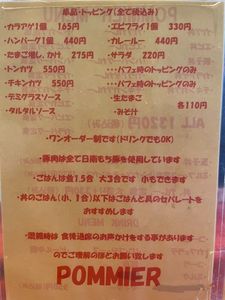 単品・トッピング(全て税込み)
・カラアゲ1個 165円
・エビフライ1個 330円
・ハンバーグ1個 440円
・カレールー 440円
・たまご増し、かけ 275円
・サラダ 220円
・トンカツ 550円
・・・パフェ時のトッピングのみ
・チキンカツ 550円
・・・パフェ時のトッピングのみ
・デミグラスソース
・生たまご
・タルタルソース
・みそ汁
各110円
・ワンオーダー制です(ドリンクでもOK)
豚肉は全て日南もち豚を使用しています
・ごはんは並1.5合 大3合です 小もできます
・丼のごはん(小、1合)以下はごはんと具のセパレートを
おすすめします
・混雑時は 食後退席のお声かけをする事があります
のでご理解のほどお願い致します
POMMIER